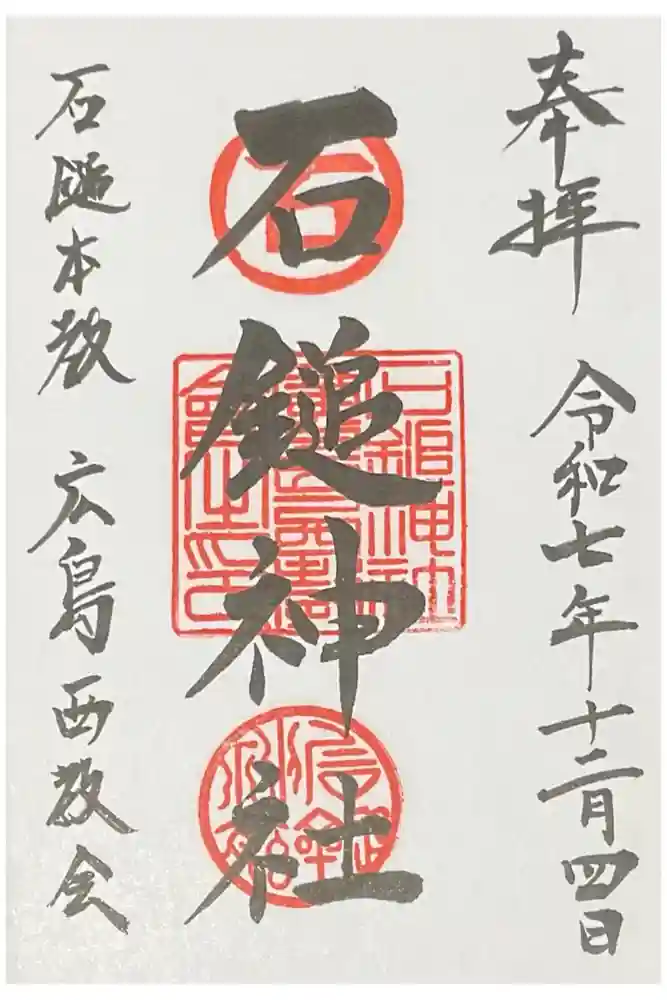 奉拝 令和七年十二月四日
石鎚神社
石鎚本教 広島西教会